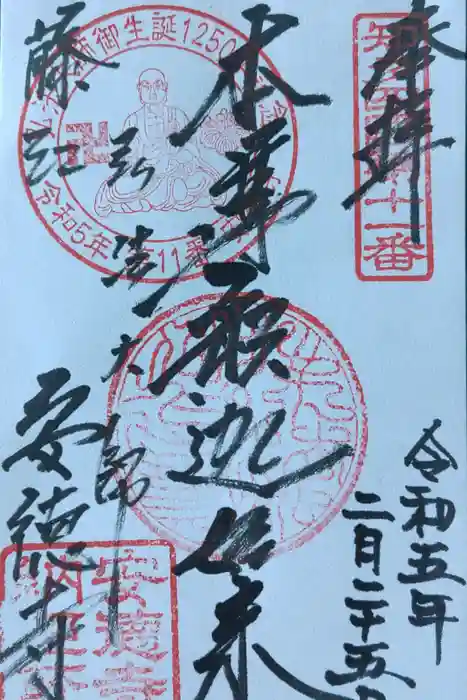 奉拝
知多四国第十一番
令和五年
二月二十五
本尊釈迦如来
弘法大師
藤江
安徳寺
師御生誕1250
令和5年
11番
安徳寺